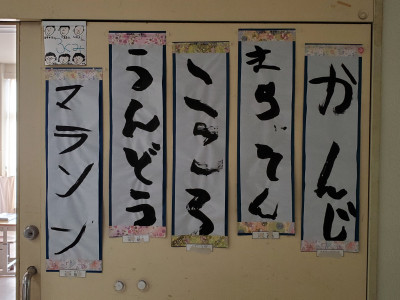 かんじ
まらそん
こころ
うんどう
マラソン